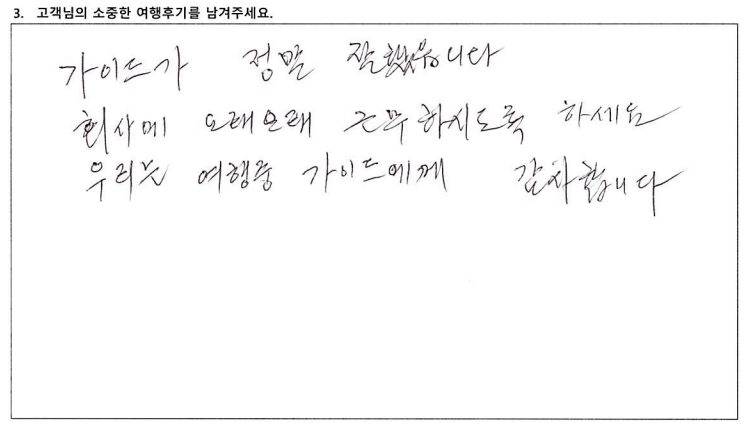 3. 고객님의 소중한 여행후기를 남겨주세요.
가이드가 정말 잘했습니다
회사에 오래오래 근무하시도록 하세요
우리는 여행중 가이드에게 감사합니다